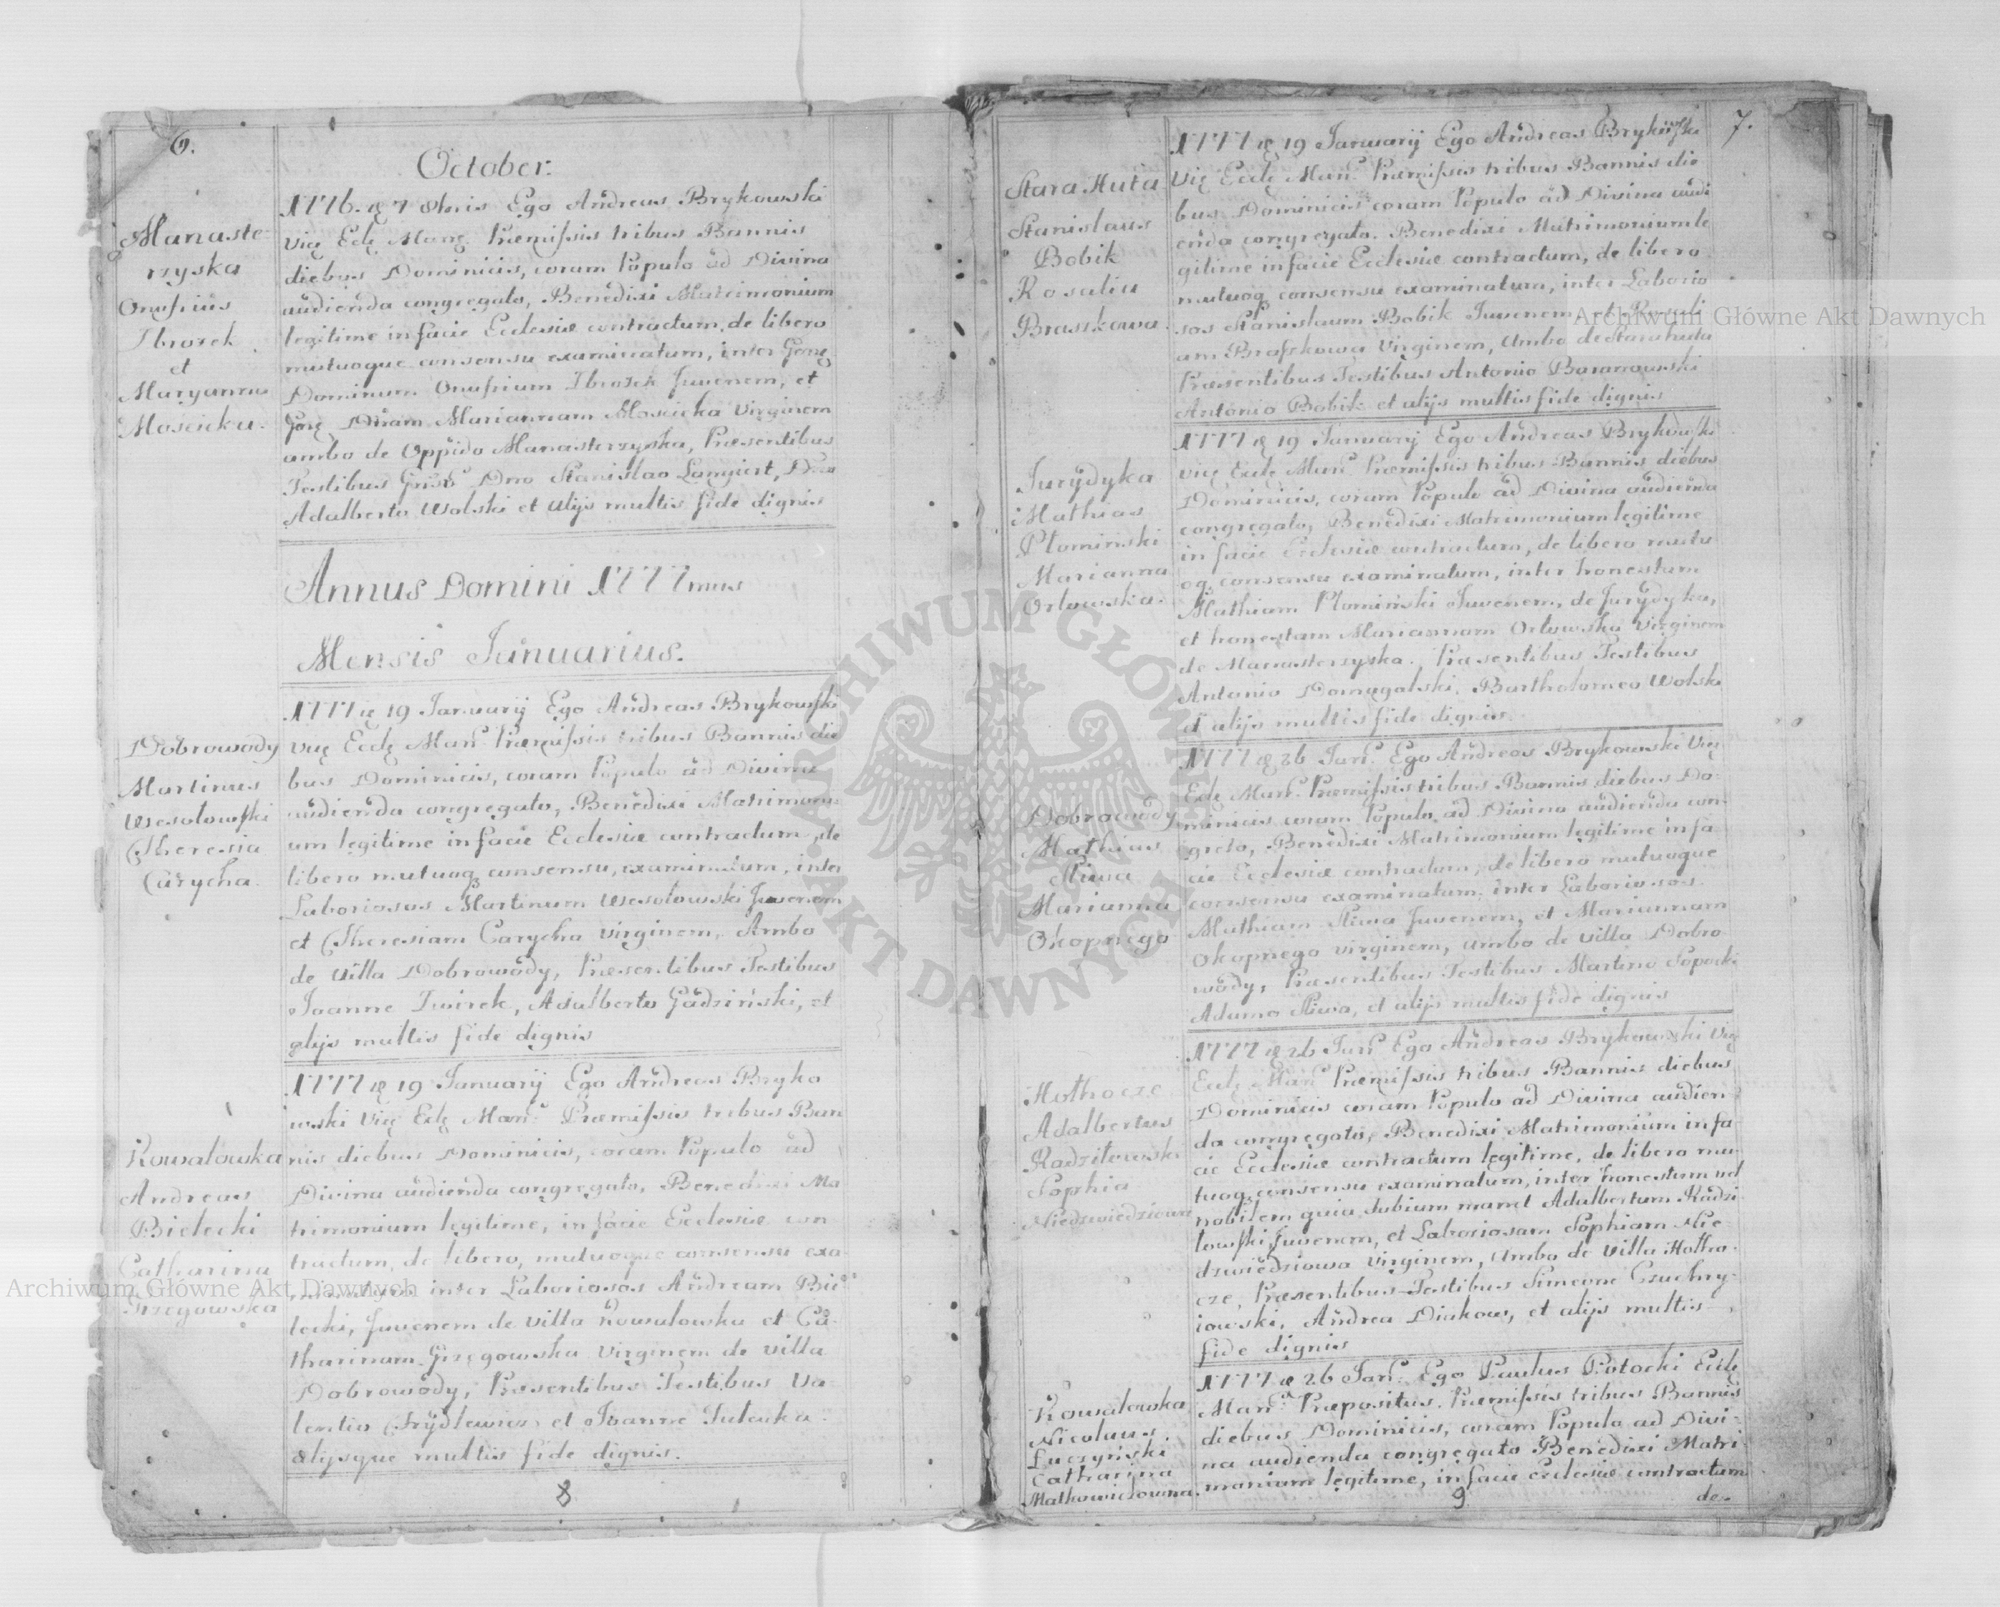 6.
October.
Manaste-
rzyska
Onufrius
Ibrozek
et
Maryanna
Moscicka.
1776. d 7 8bris Ego Andreas Brykowski
Vic Ecle Manc Præmissis tribus Bannis
diebus Dominicis, coram Populo ad Divina
audienda congregato, Benedixi Matrimonium
legitime in facie Ecclesiæ contractum, de libero
mutuoque consensu examinatum, inter Genę
Dominum Onufrium Ibrozek Juvenem, et
Genę Dnam Mariannam Moscicka Virginem
ambo de Oppido Manasterzyska, Præsentibus
Testibus Dno Stanislao Longiert, Dno
Adalberto Wolski et alijs multis fide dignis
Annus Domini 1777mus
Mensis Januarius.
Dobrowody
Martinus
Wesołowski
Theresia
Carycha.
1777 d 19 Januarij Ego Andreas Brykowski
Vic Ecclę Manc Præmissis tribus Bannis die
bus Dominicis, coram Populo ad Divina
audienda congregato, Benedixi Matrimoni-
um legitime in facie Ecclesiæ contractum, de
libero mutuoq consensu, examinatum, inter
Laboriosos Martinum Wesołowski Juvenem
et Theresiam Carycha Virginem, Ambo
de Villa Dobrowody, Præsentibus Testibus
Joanne Zwirek, Adalberto Gadziński, et
alijs multis fide dignis
Kowalowka
Andreas
Bielecki
Catharina
Grzegowska
1777 d 19 Januarij Ego Andreas Bryko
wski Vic Eclę Manc Præmissis tribus Ban
nis diebus Dominicis, coram Populo ad
Divina audienda congregato, Benedixi Ma
trimonium legitime, in facie Ecclesiæ con
tractum, de libero, mutuoque consensu exa
minatum inter Laboriosos Andream Bie
lecki, Juvenem de Villa Kowalowka et Ca-
tharinam Grzegowska Virginem de Villa
Dobrowody, Præsentibus Testibus Va-
lentio Frydlewicz et Joanne
alijsque multis fide dignis.
8
7.
Stara Huta
Stanislaus
Bobik
Rosalia
Braszkowa
1777 d 19 Januarij Ego Andreas Brykowski
Vic Eccle Manc Præmissis tribus Bannis die
bus Dominicis coram Populo ad Divina audi
enda congregato. Benedixi Matrimonium le
gitime in facie Ecclesiæ contractum, de libero
mutuoq consensu examinatum, inter Laborio
sos Stanislaum Bobik Juvenem et Rosali
am Braszkowa Virginem, ambo de Starahuta
Præsentibus Testibus Antonio Baranowski
Antonio Bobik et alijs multis fide dignis
Jurydyka
Mathias
Płominski
Marianna
Orłowska.
1777 d 19 Januarij Ego Andreas Brykowski
Vic Ecclę Manc Præmissis tribus Bannis diebus
Dominicis, coram Populo ad Divina audienda
congregato, Benedixi Matrimonium legitime
in facie Ecclesiæ contractum, de libero mutu
oq consensu examinatum, inter honestum
Mathiam Płominski Juvenem, de Jurydyka,
et honestam Mariannam Orłowska Virginem
de Manasterzyska. Præsentibus Testibus
Antonio Domagalski, Bartholomeo Wolski
et alijs multis fide dignis.
Dobrowody
Mathius
Sliwa
Marianna
Okopnego
1777 d 26 Janr Ego Andreas Brykowski Vic
Eclę Manc Præmissis tribus Bannis diebus Do-
minicis coram Populo ad Divina audienda con-
greto, Benedixi Matrimonium legitime in fa-
cie Ecclesiæ contractum, de libero mutuoque
consensu examinatum, inter Laboriosos
Mathiam Sliwa Juvenem, et Mariannam
Okopnego Virginem, ambo de Villa Dobro-
wody, Præsentibus Testibus Martino Sopocki
Adamo Sliwa, et alijs multis fide dignis
Hothocze
Adalbertus
Radziłowski
Sophia
Niedzwiedziowa
1777 d 26 Janr Ego Andreas Brykowski Vic
Ecclę Manc Præmissis tribus Bannis diebus
Dominicis coram Populo ad Divina audien-
da congregato, Benedixi Matrimonium in fa-
cie Ecclesiæ contractum legitime, de libero mu-
tuoq consensu examinatum, inter honestum vel
nobilem quia dubium manet Adalbertum Radzi-
łowski Juvenem, et Laboriosam Sophiam Nie-
dzwiedziowa Virginem, ambo de Villa Hotho-
cze, Præsentibus Testibus Simeone Czuchry-
iowski, Andrea Diakow, et alijs multis
fide dignis
Kowalowka
Nicolaus
Łuczyński
Catharina
Matkowiczowna.
1777 d 26 Janr Ego Paulus Potocki Eccle
Manc Præpositus. Præmissis tribus Bannis
diebus Dominicis, coram Populo ad Divi-
na audienda congregato Benedixi Matri-
monium legitime, in facie Ecclesiæ contractum
de-
9
Archiwum Główne Akt Dawnych
Archiwum Główne Akt Dawnych
ARCHIWUM GŁÓWNE AKT DAWNYCH